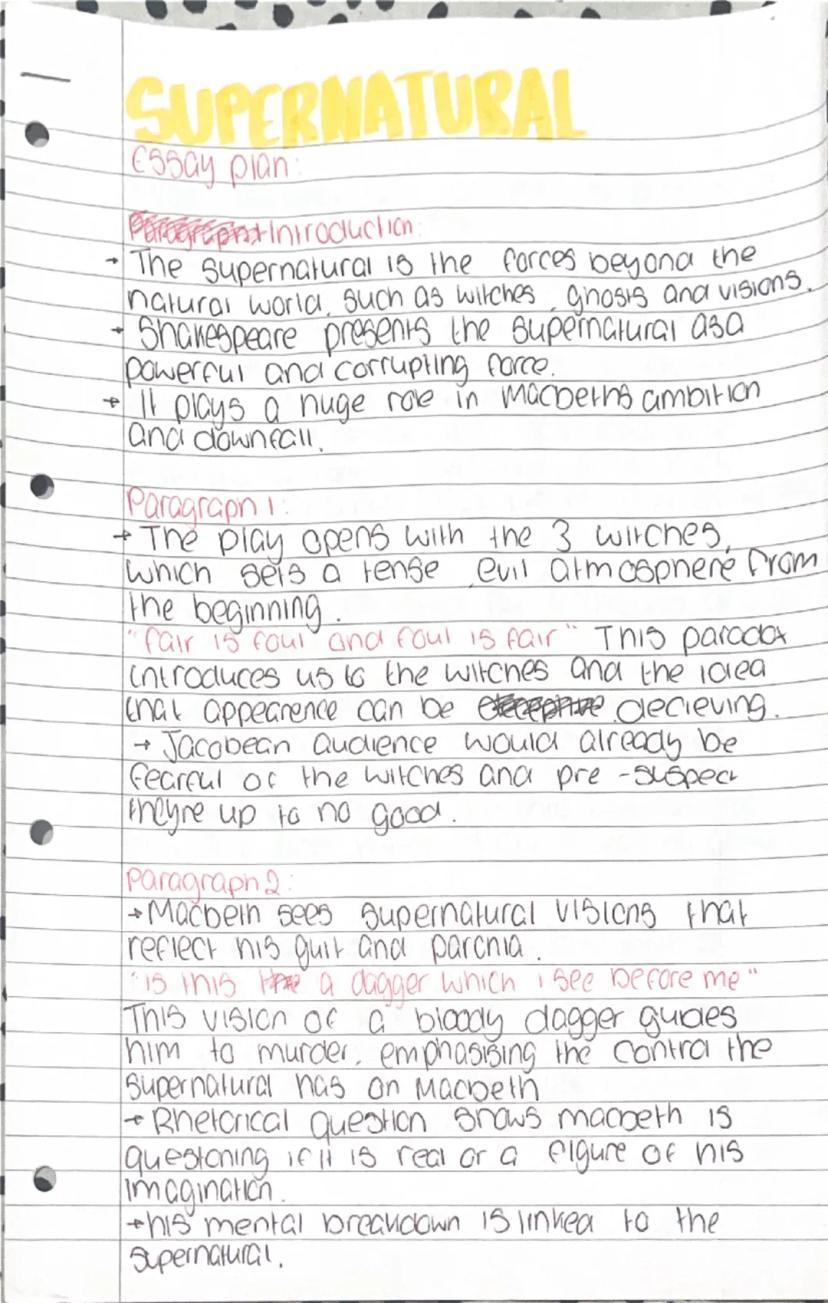 SUPERNATURAL
Essay plan:
Introduction:
→ The supernatural is the forces beyond the
natural world, such as witches, ghosts and visions.
→ Shakespeare presents the supernatural as a
powerful and corrupting force.
→ It plays a huge role in Macbeths ambition
and downfall.
Paragraph 1:
→ The play opens with the 3 witches,
which sets a tense, evil atmosphere from
the beginning.
"fair is foul and foul is fair" This paradox
introduces us to the witches and the idea
that appearence can be decieving.
→ Jacobean audience would already be
fearful of the witches and pre-suspect
theyre up to no good.
Paragraph 2:
→ Macbeth sees supernatural visions that
reflect his guilt and parania.
"is this a dagger which i see before me"
This vision of a bloody dagger guides
him to murder, emphasising the control the
supernatural has on Macbeth
→ Rhetorical question shows macbeth is
questoning if it is real or a figure of his
imagination.
→ his mental breakdown is linked to the
supernatural.